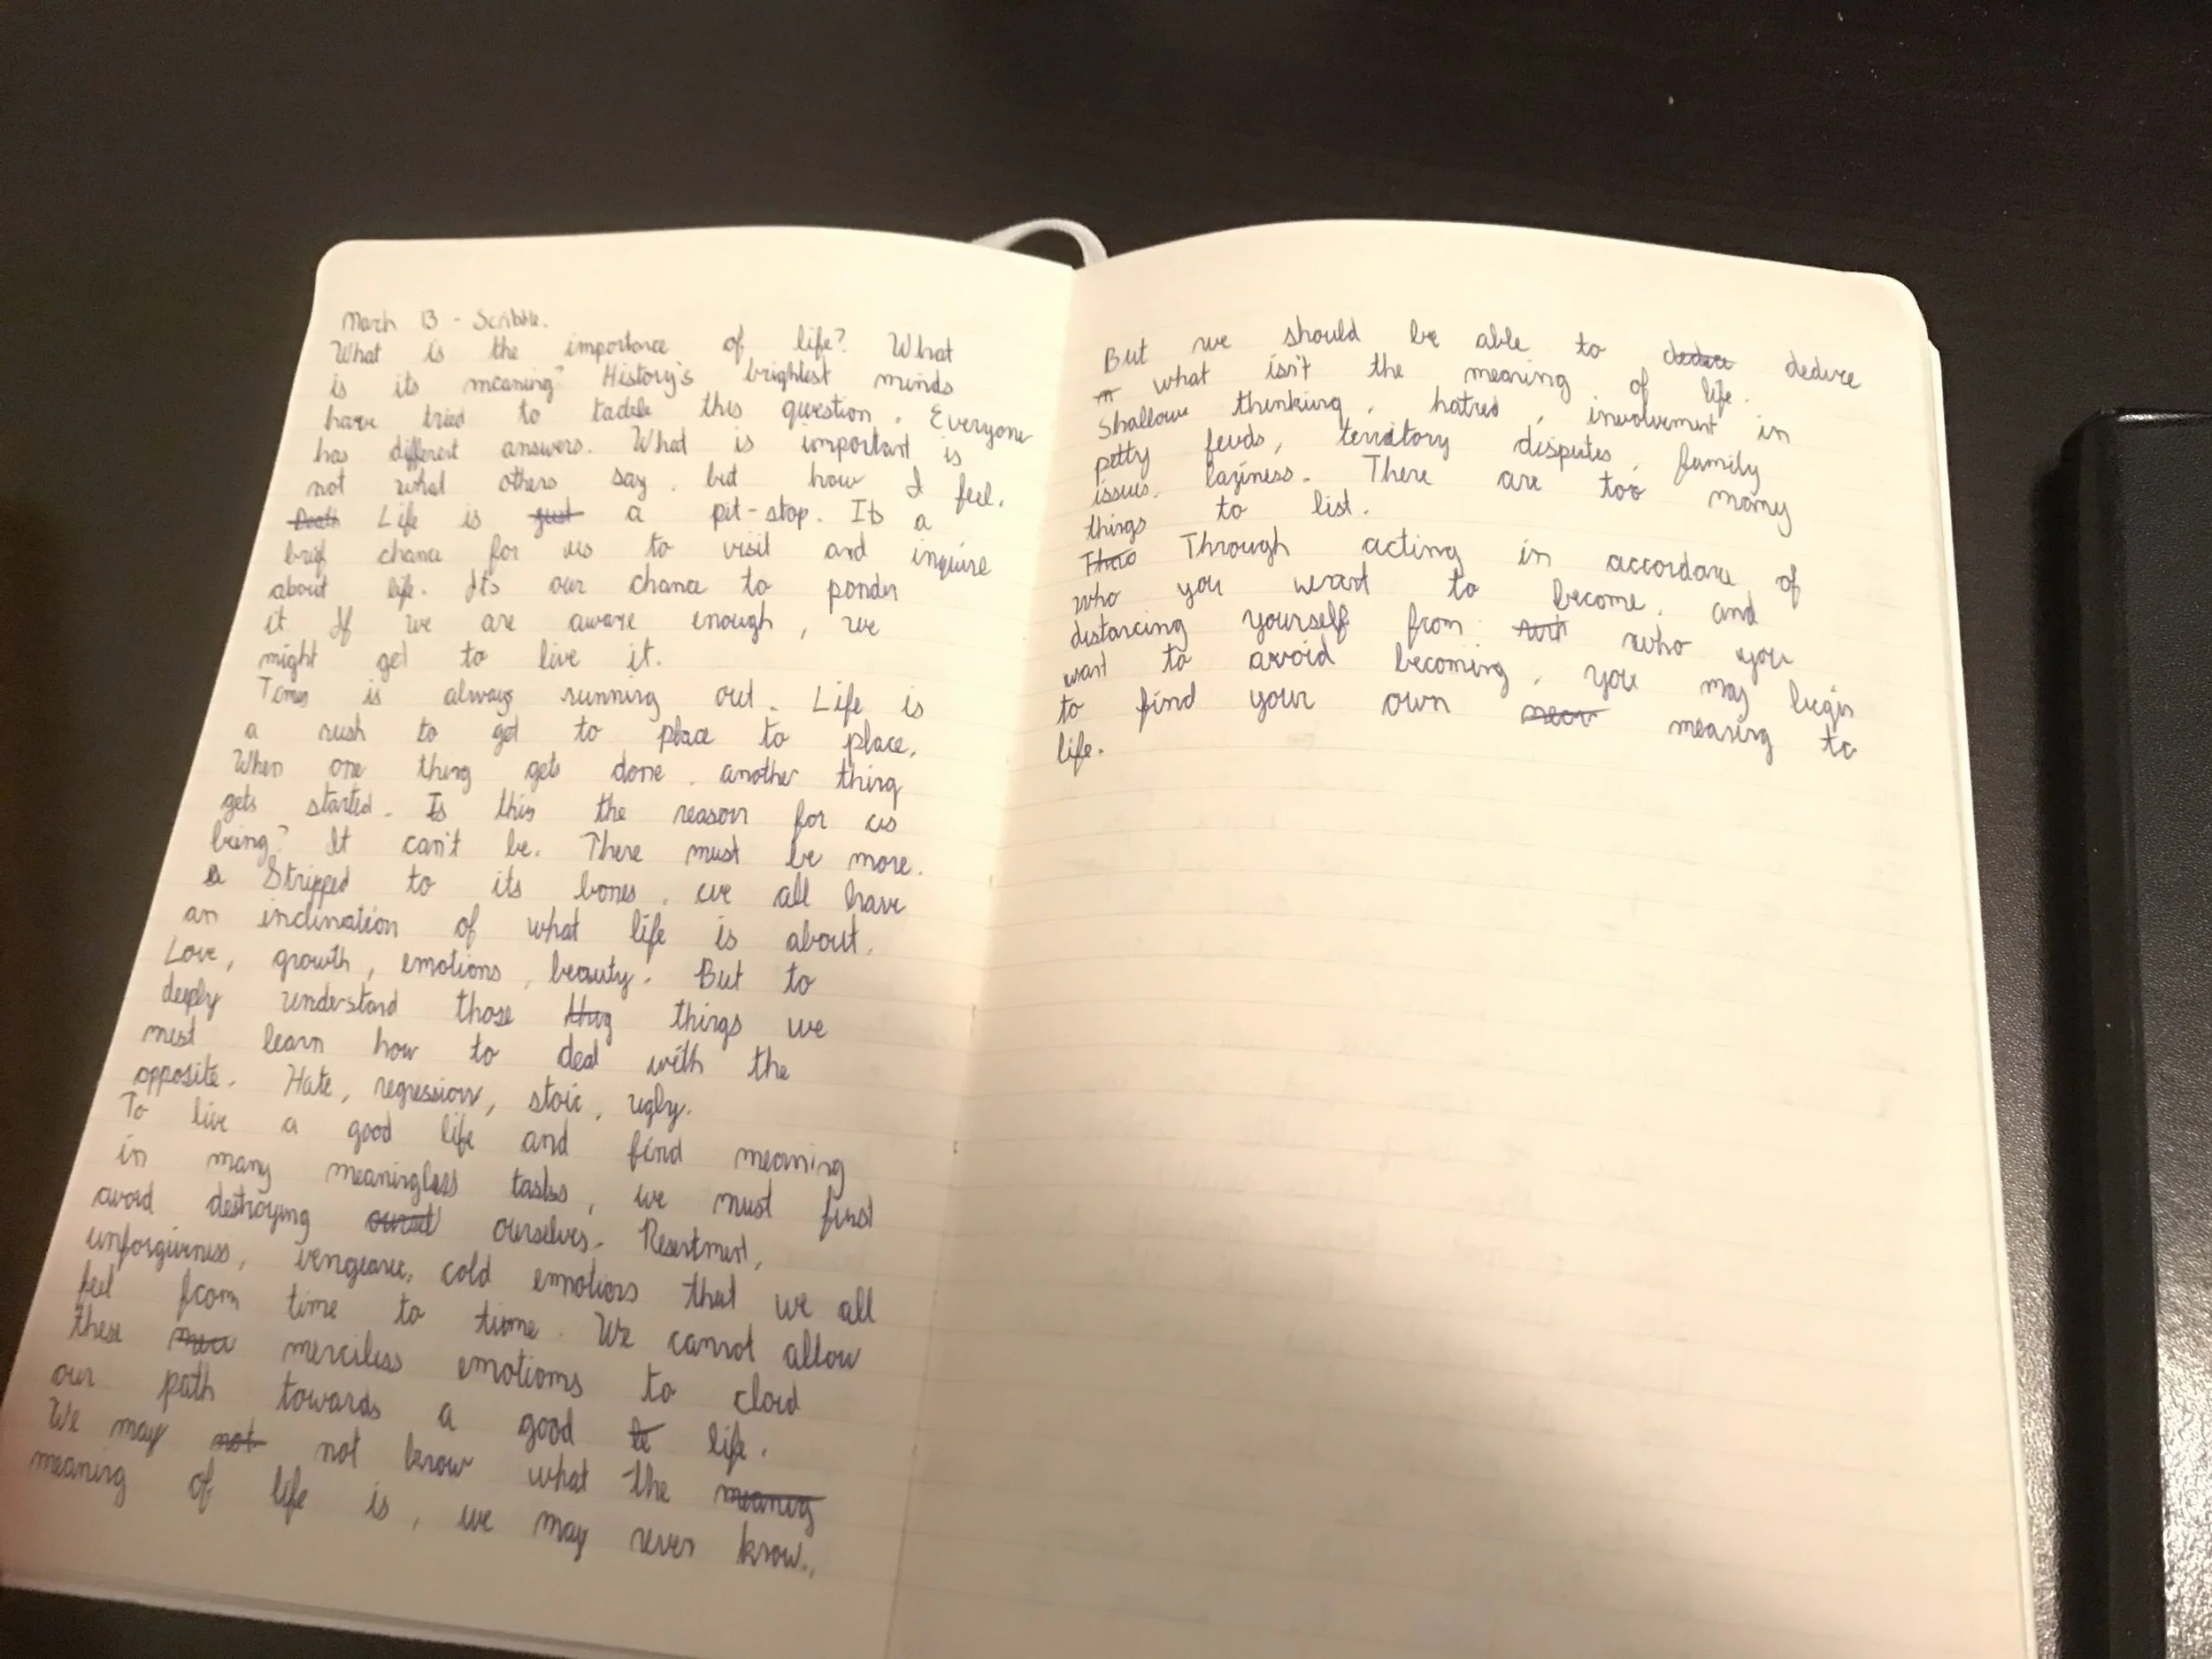 March 13 - Scribble.
What is the importance of life? What
is its meaning? History's brightest minds
have tried to tackle this question. Everyone
has different answers. What is important is
not what others say, but how I feel.
Death Life is just a pit-stop. Its a
brief chance for us to visit and inquire
about life. It's our chance to ponder
it. If we are aware enough, we
might get to live it.
Time is always running out. Life is
a rush to get to place to place.
When one thing gets done, another thing
gets started. Is this the reason for us
being? It can't be. There must be more.
Stripped to its bones, we all have
an inclination of what life is about.
Love, growth, emotions, beauty. But to
deeply understand those thing things we
must learn how to deal with the
opposite. Hate, regression, stoic, ugly.
To live a good life and find meaning
in many meaningless tasks, we must first
avoid destroying oursel ourselves. Resentment,
unforgiveness, vengeance, cold emotions that we all
feel from time to time. We cannot allow
these merciless emotions to cloud
our path towards a good life.
We may not not know what the meaning
meaning of life is, we may never know.
But we should be able to deduce deduce
what isn't the meaning of life.
Shallow thinking, hatred, involvement in
petty feuds, territory disputes, family
issues, laziness. There are too many
things to list.
Thro Through acting in accordance of
who you want to become, and
distancing yourself from who you
want to avoid becoming, you may begin
to find your own mean meaning to
life.